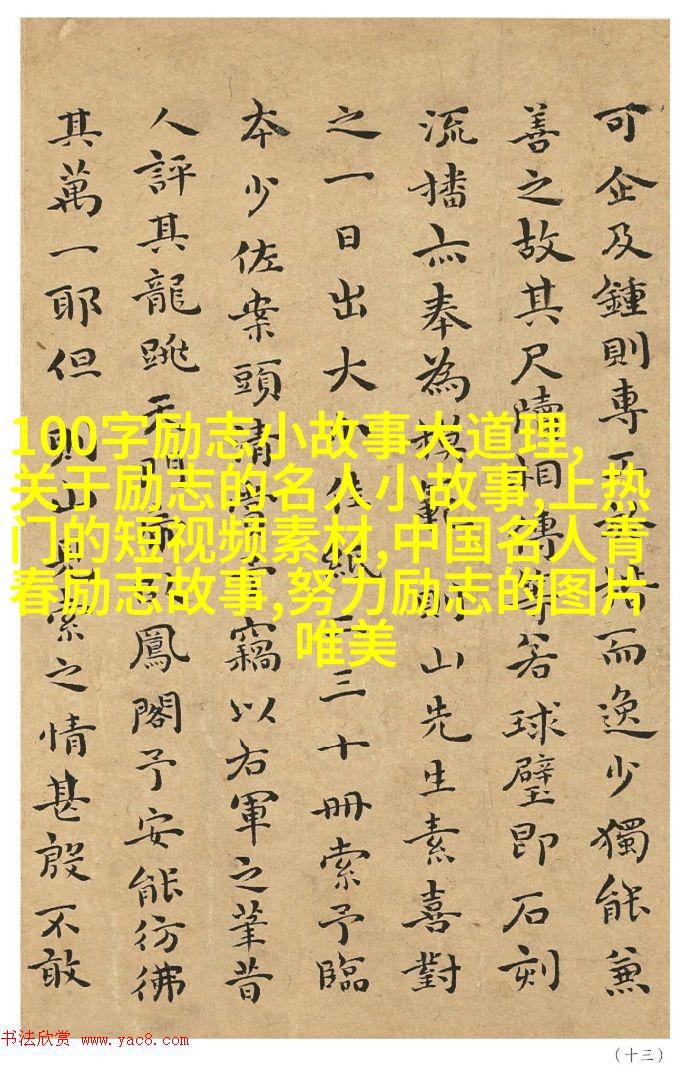 可企及鍾則專而
善之故其尺牘相傳
流播亦奉為模範則山先生素喜對
之一日出大
三十冊索予臨
本少佐案頭清
竊以右軍之筆昔
人評其龍跳天門
鳳閣予安能彷彿
其萬一耶但
索之情甚殷不敢
而逸少獨能兼
若球璧即石刻
100字励志小故事大道理,
关于励志的名人小故事,上热
门的短视频素材,中国名人青
春励志故事,努力励志的图片
唯美
书法欣赏 www.yac8.com
(十三)